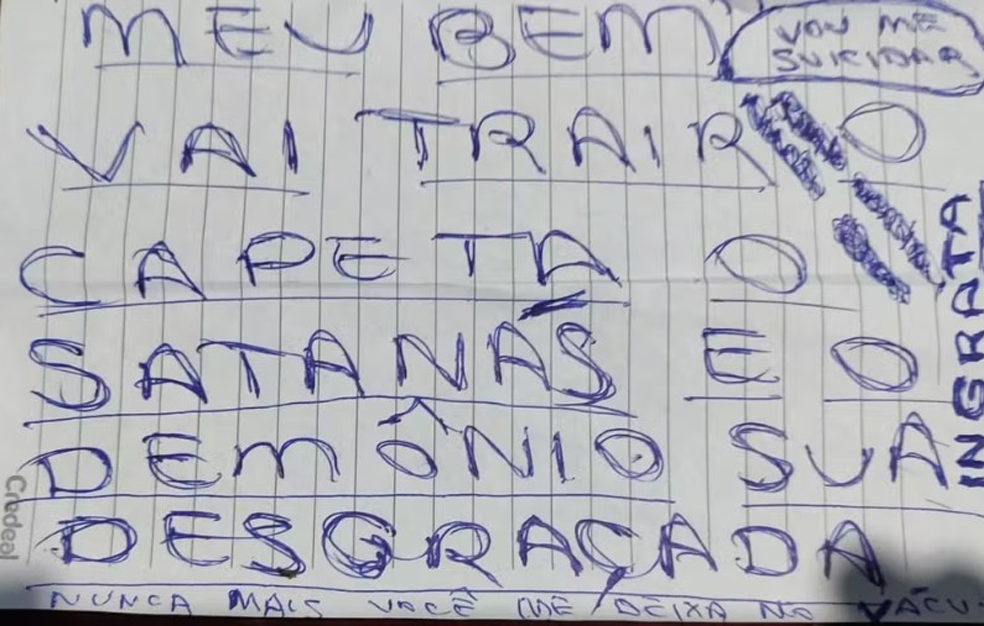 MEU BEM
VOU ME
SUICIDAR
VAI TRAIR O
CAPETA O
SATANÁS E O
DEMÔNIO SUA
DESGRAÇADA
NUNCA MAIS VOCÊ ME DEIXA NO VÁCU
INGRATA
Credeal